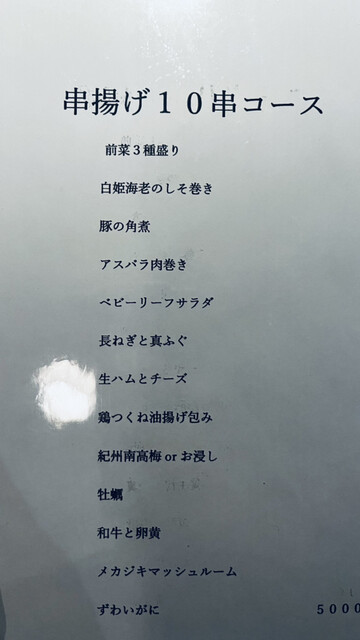 串揚げ１０串コース
前菜３種盛り
白姫海老のしそ巻き
豚の角煮
アスパラ肉巻き
ベビーリーフサラダ
長ねぎと真ふぐ
生ハムとチーズ
鶏つくね油揚げ包み
紀州南高梅 or お浸し
牡蠣
和牛と卵黄
メカジキマッシュルーム
ずわいがに ５０００